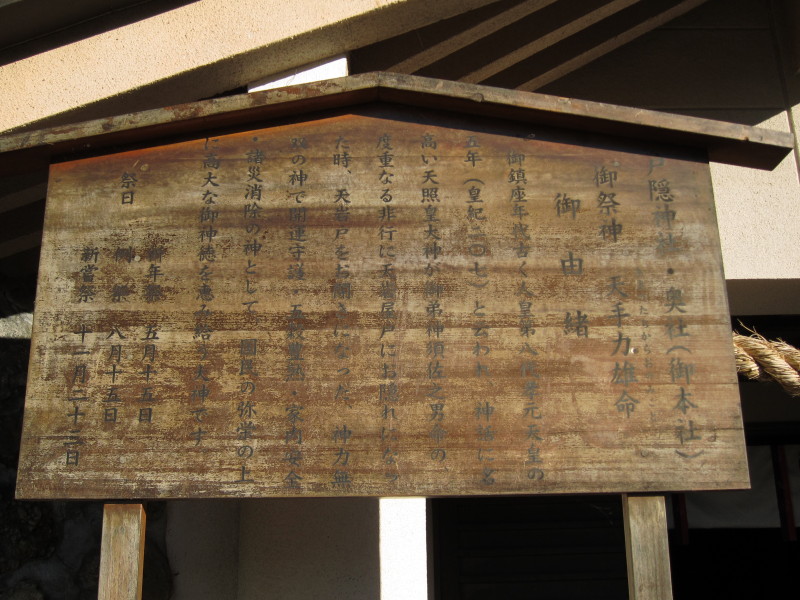 戸隠神社・奥社(御本社)
御祭神 天手力雄命
御由緒
御鎮座年歴古く人皇第八代孝元天皇の
五年(皇紀 〇七)と云われ 神話に名
高い天照皇大神が御弟神須佐之男命の
度重なる非行に天岩屋戸にお隠れになっ
た時、天岩戸をお開きになった 神力無
双の神で開運守護・五穀豊熟・家内安全
・諸災消除の神として 国民の弥栄の上
に高大な御神徳を恵み給う大神です。
祭日
祈年祭 五月十五日
例祭 八月十五日
新嘗祭 十一月二十三日